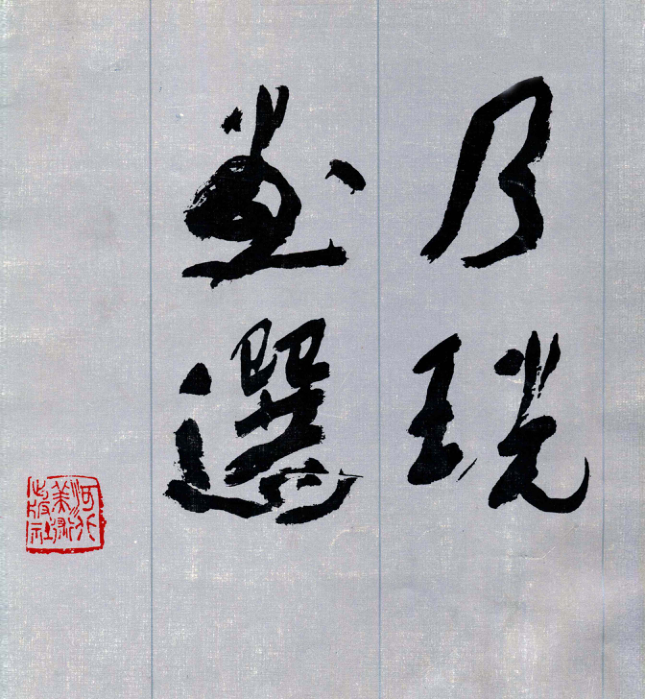 乃珖
畫選
河北
美術
出版社